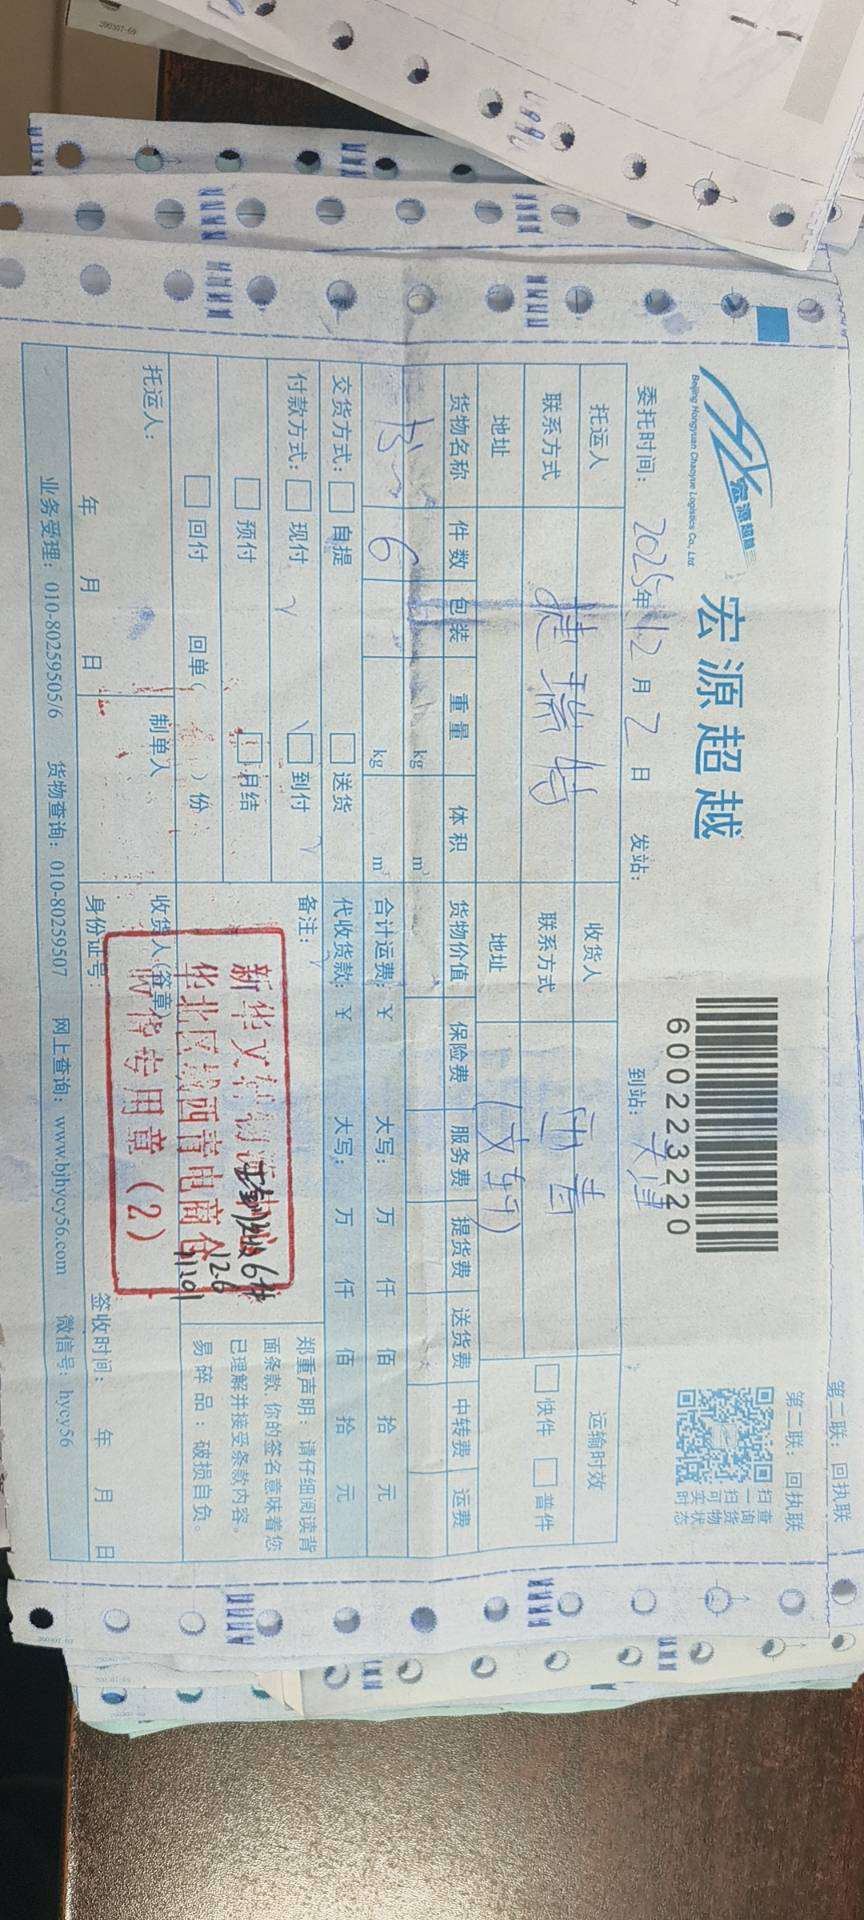 宏源超越
Beijing Hongyuan Chaoyue Logistics Co., Ltd.
宏源超越
6000223220
扫一扫可实时
查询货物状态
第二联：回执联
第二联：回执联
委托时间：2025年12月2日 发站： 到站：天津
托运人 捷瑞特 收货人 西青 运输时效
联系方式 联系方式 (文轩) 快件 普件
地址 地址
货物名称 件数 包装 重量 体积 货物价值 保险费 服务费 提货费 送货费 中转费 运费
kg m³
6 kg m³ 合计运费：¥ 大写： 万 仟 佰 拾 元
交货方式： 自提 送货 代收货款：¥ 大写： 万 仟 佰 拾 元
付款方式： 现付 到付 备注：
预付 月结
回付 回单( )份
郑重声明：请仔细阅读背
面条款，你的签名意味着您
已理解并接受条款内容。
易碎品：破损自负。
新华文轩
华北区域西青电商仓
收货专用章（2）
6件
12.6
托运人： 制单人 收货人(签章)
年 月 日 身份证号： 签收时间： 年 月 日
业务受理：010-80259505/6 货物查询：010-80259507 网上查询：www.bjhycy56.com 微信号：hycy56